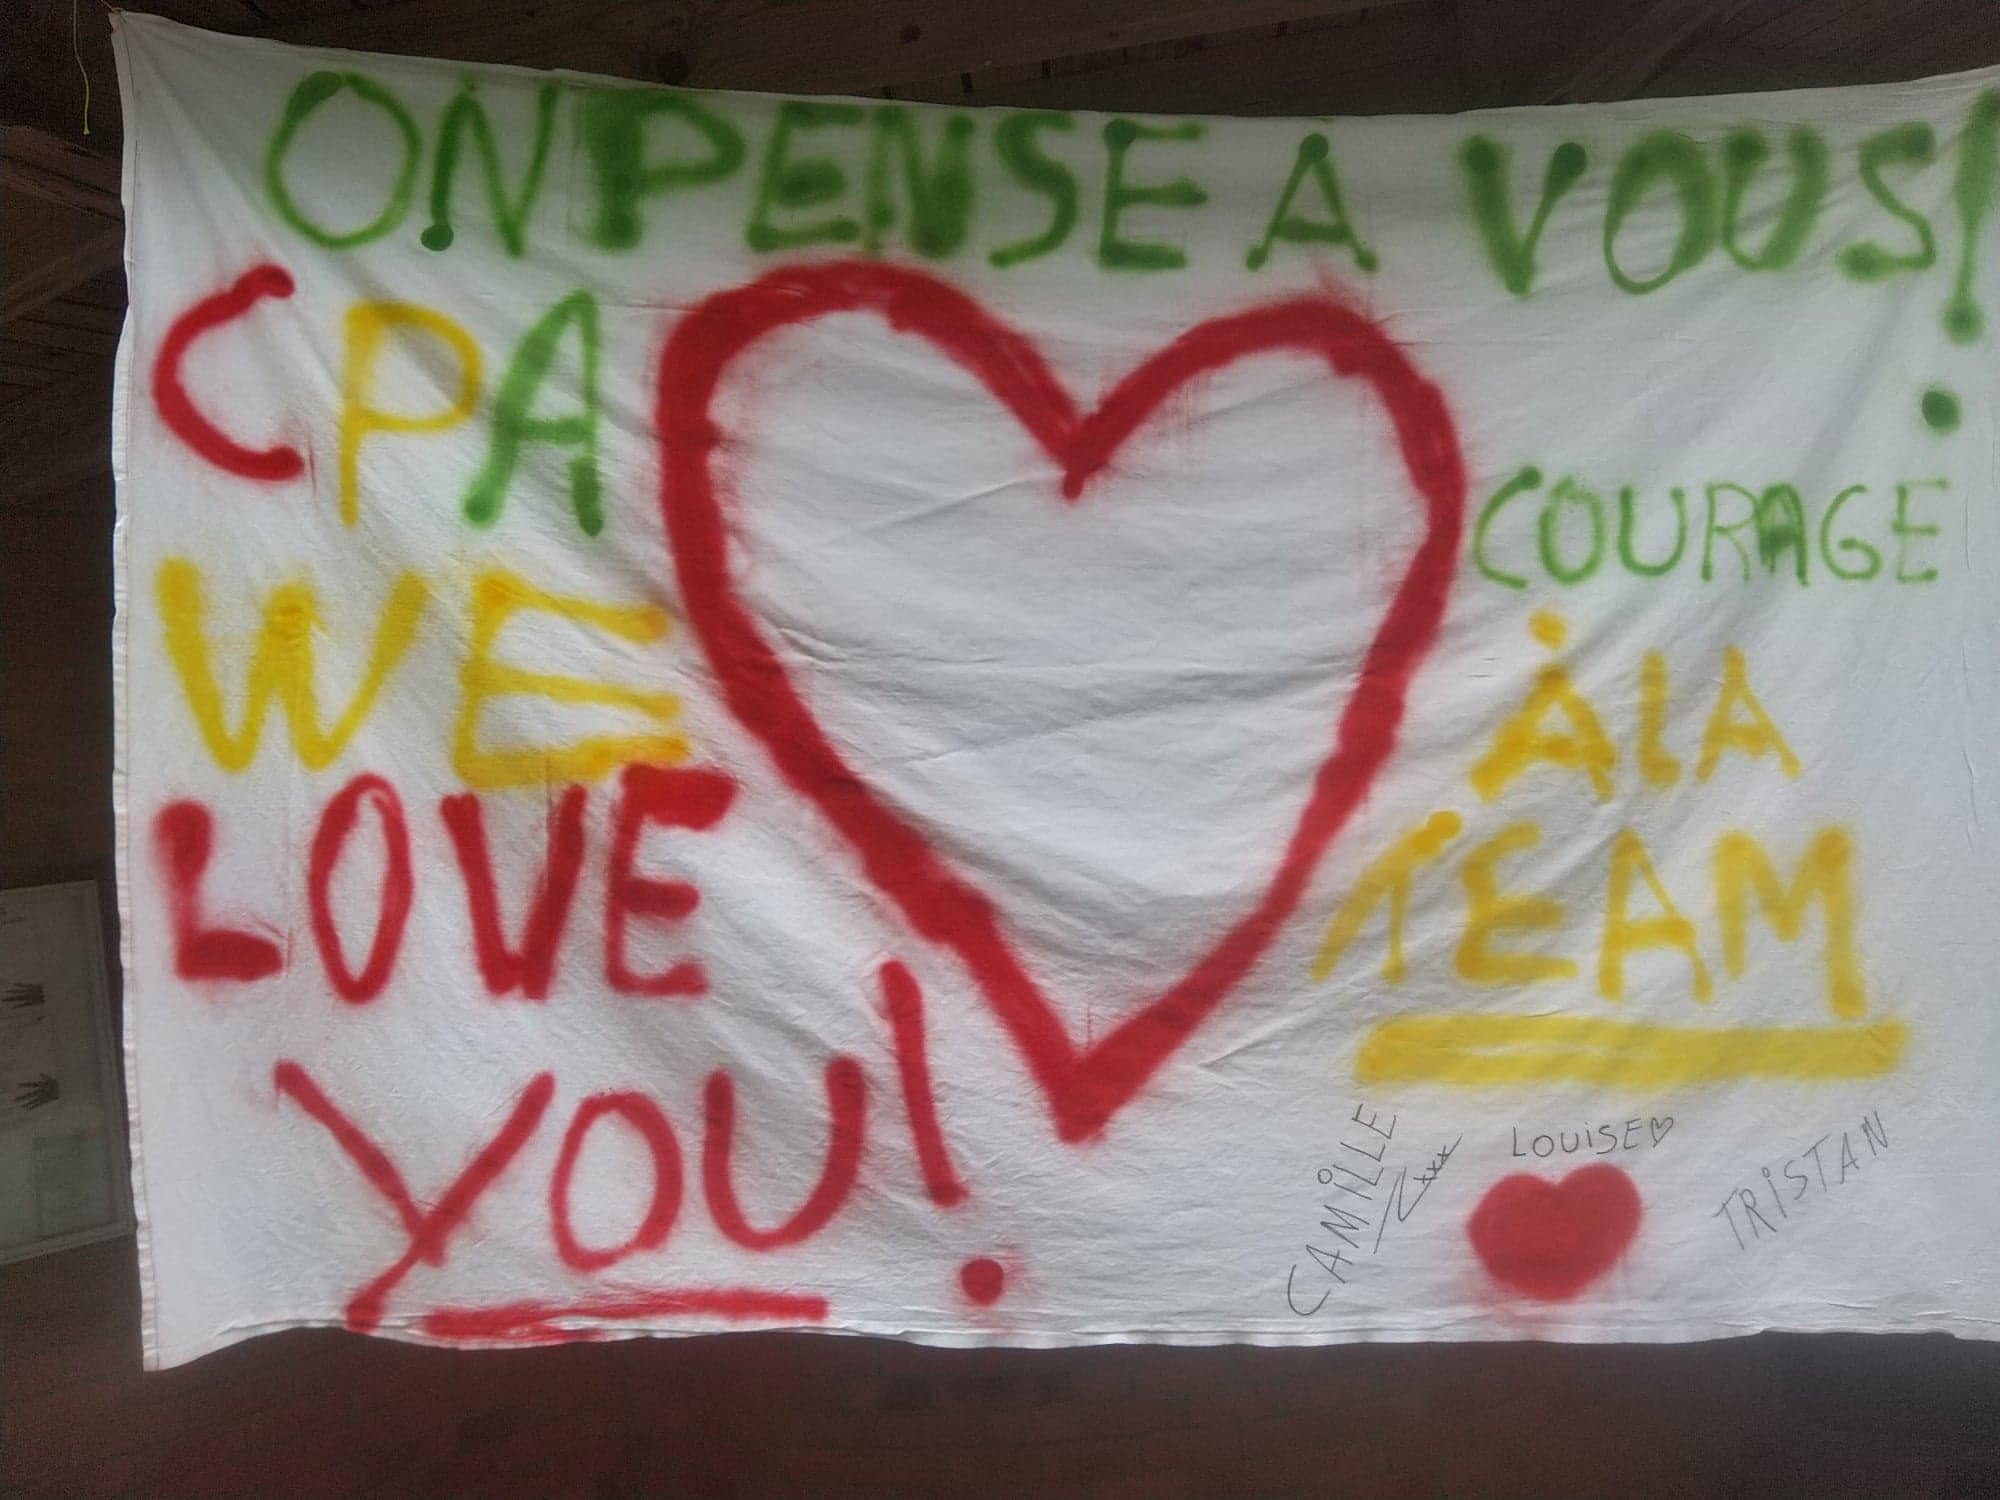 ON PENSE A VOUS!
CPA
WE
LOVE
YOU!
COURAGE
À LA
TEAM
CAMILLE
xxx
LOUISE
TRISTAN